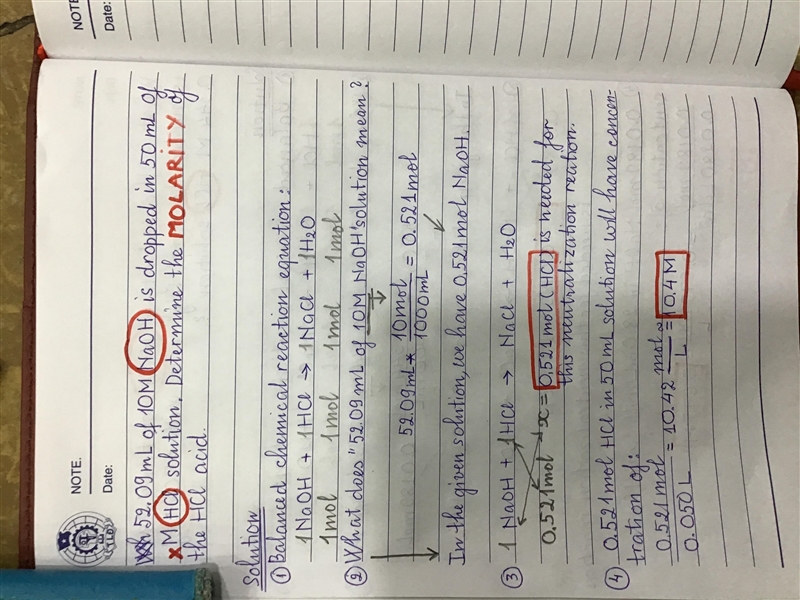 NOTE.
Date:
NOTE.
Date:
52.09 mL of 10M NaOH is dropped in 50 mL of
x M HCl solution. Determine the MOLARITY of
the HCl acid.
Solution
① Balanced chemical reaction equation:
1NaOH + 1HCl → 1NaCl + 1H₂O
1mol 1mol 1mol 1mol
② What does "52.09 mL of 10M NaOH" solution mean?
52.09mL * 10mol / 1000mL = 0.521mol
In the given solution, we have 0.521mol NaOH.
③ 1 NaOH + 1HCl → NaCl + H₂O
0.521mol x = 0.521mol (HCl) is needed for
this neutralization reation.
④ 0.521mol HCl in 50 mL solution will have concen-
tration of:
0.521mol / 0.050 L = 10.42 mol / L ≈ 10.4 M